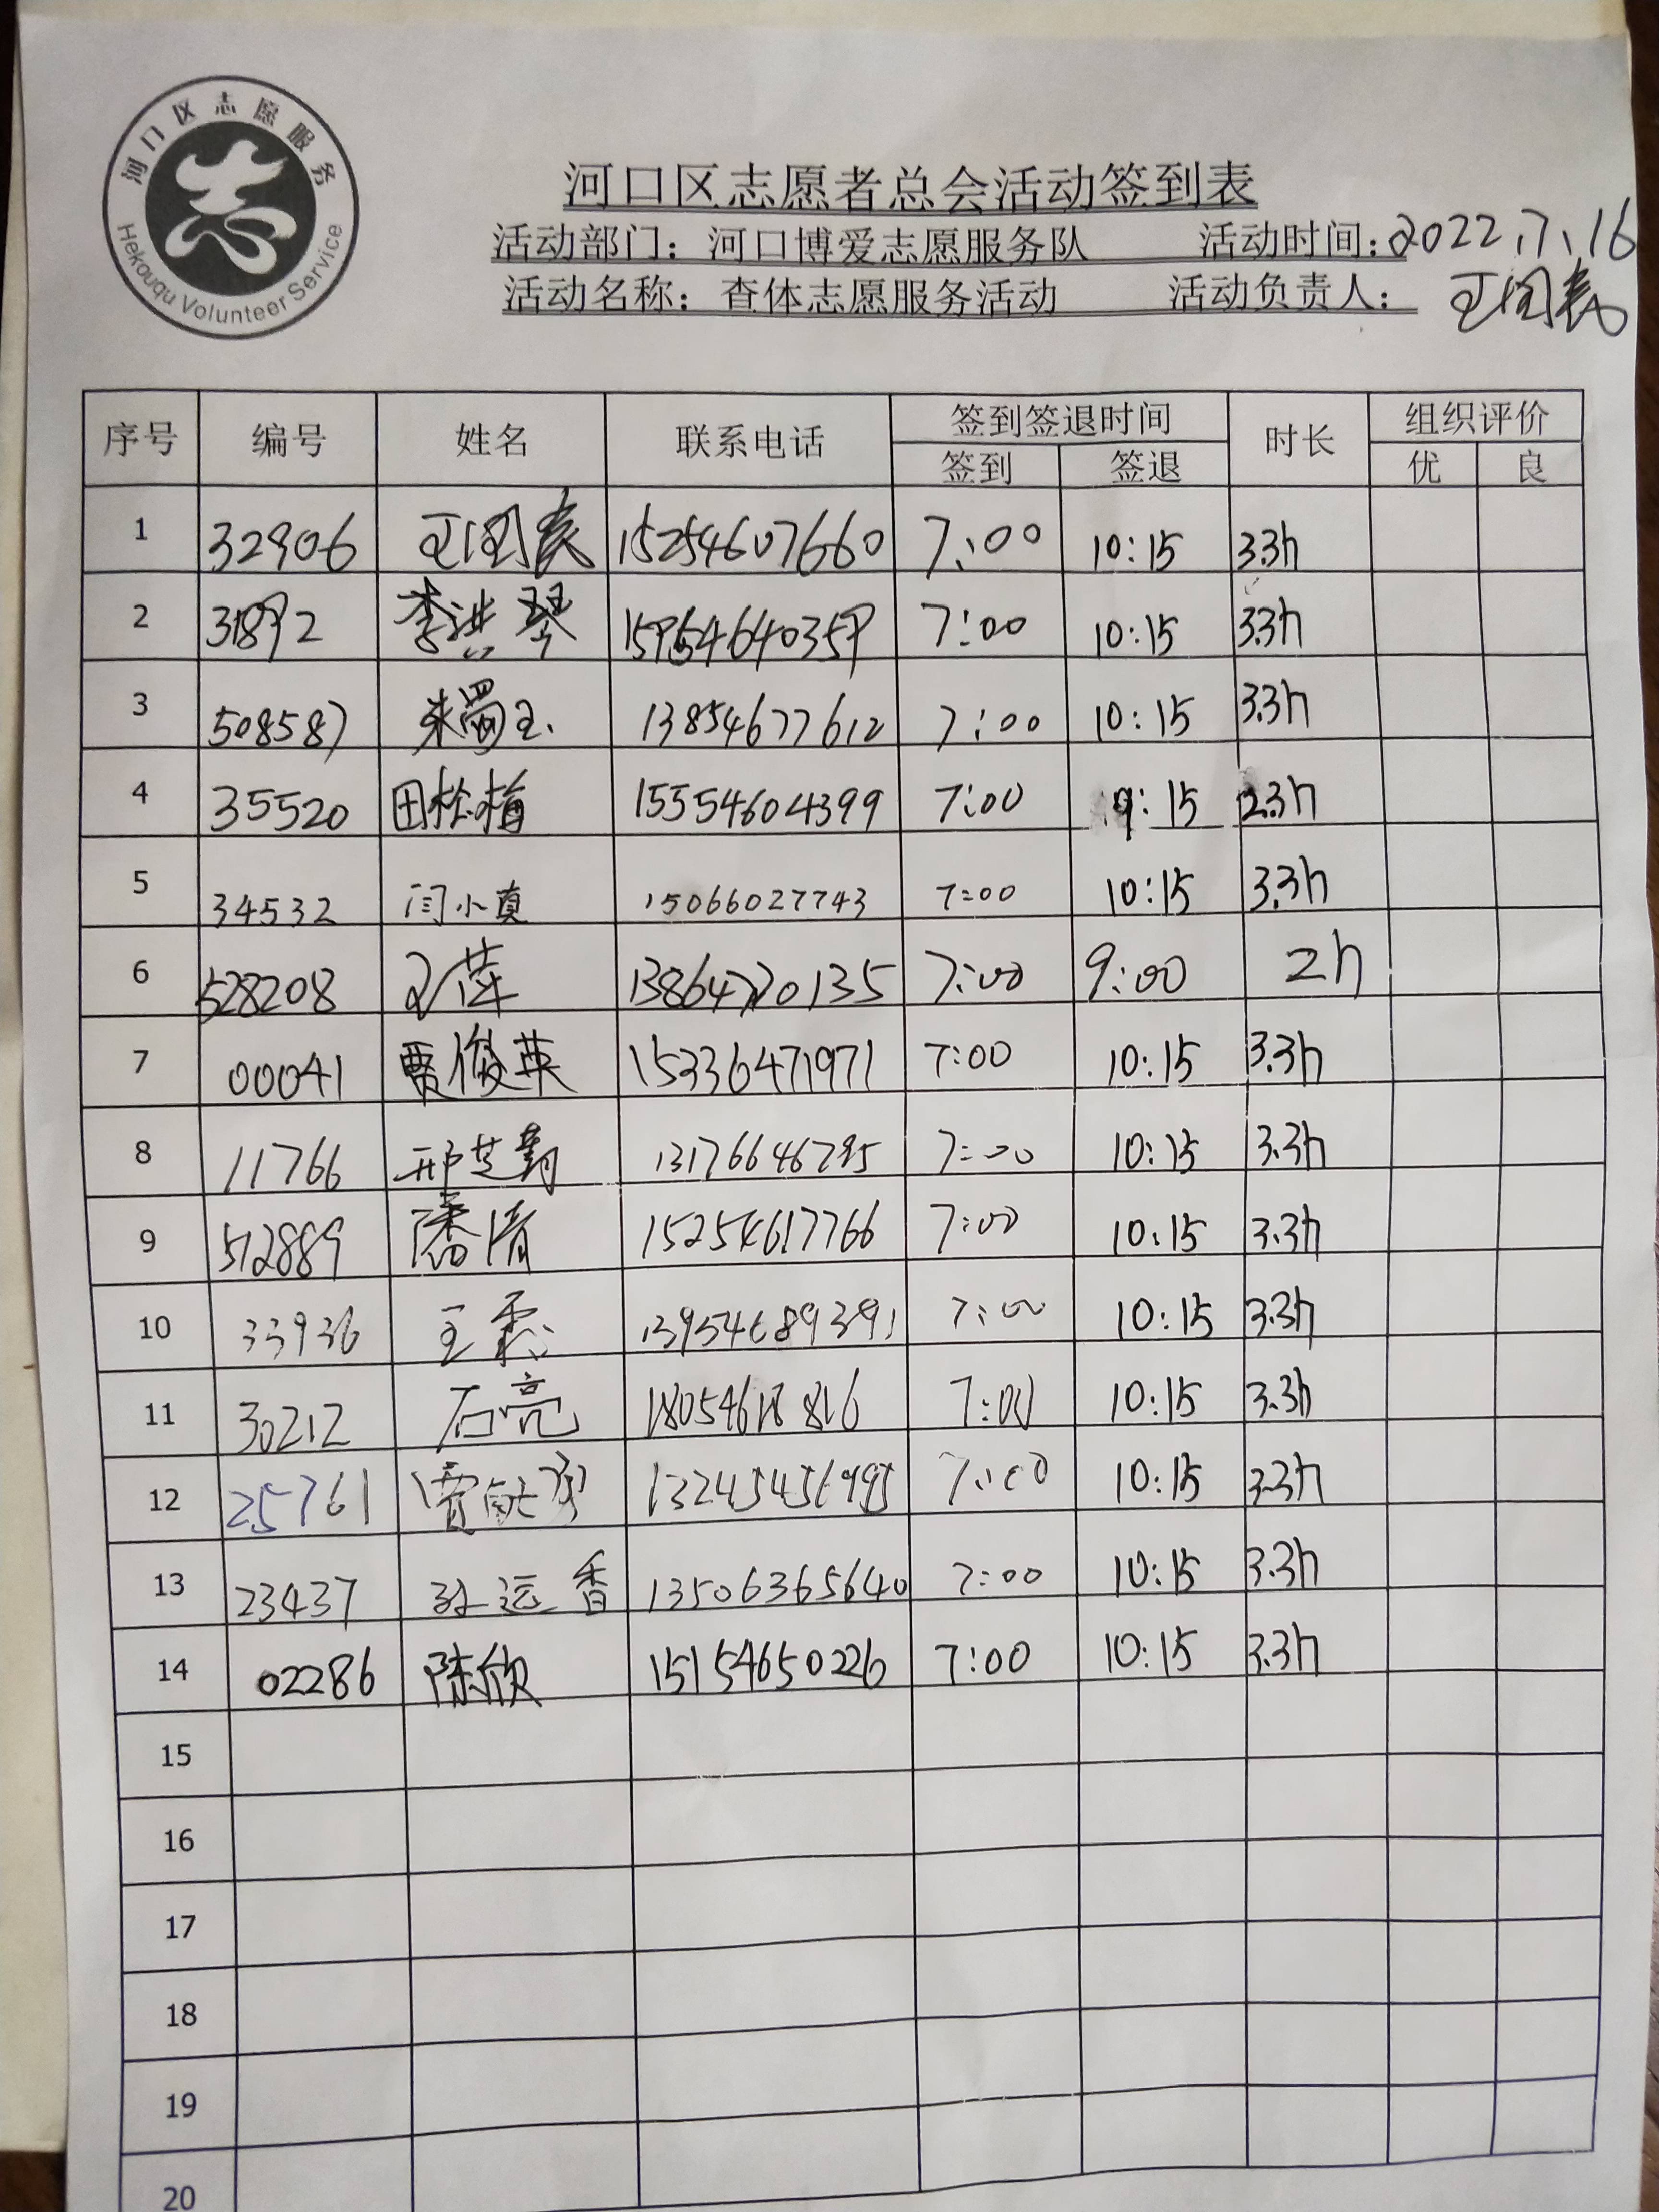 河口区志愿服务
Hekouqu Volunteer Service
河口区志愿者总会活动签到表
活动部门：河口博爱志愿服务队 活动时间：2022.7.16
活动名称：查体志愿服务活动 活动负责人：
序号 编号 姓名 联系电话 签到签退时间 时长 组织评价
签到 签退 优 良
1 32906 15254607660 7:00 10:15 3.3h
2 31892 李洪琴 159654640359 7:00 10:15 3.3h
3 508587 朱蜀玉 13854677612 7:00 10:15 3.3h
4 35520 田松梅 15554604399 7:00 9:15 2.3h
5 34532 闫小真 15066027743 7:00 10:15 3.3h
6 528208 13864720135 7:00 9:00 2h
7 00041 贾俊英 15336471971 7:00 10:15 3.3h
8 11766 邢芝勤 7:00 10:15 3.3h
9 512889 潘清 15254617766 7:00 10:15 3.3h
10 33936 王 13954689391 7:00 10:15 3.3h
11 30212 石亮 18054618816 7:00 10:15 3.3h
12 25761 7:00 10:15 3.3h
13 23437 孙远香 13506365640 7:00 10:15 3.3h
14 02286 陈欣 15154650226 7:00 10:15 3.3h
15
16
17
18
19
20